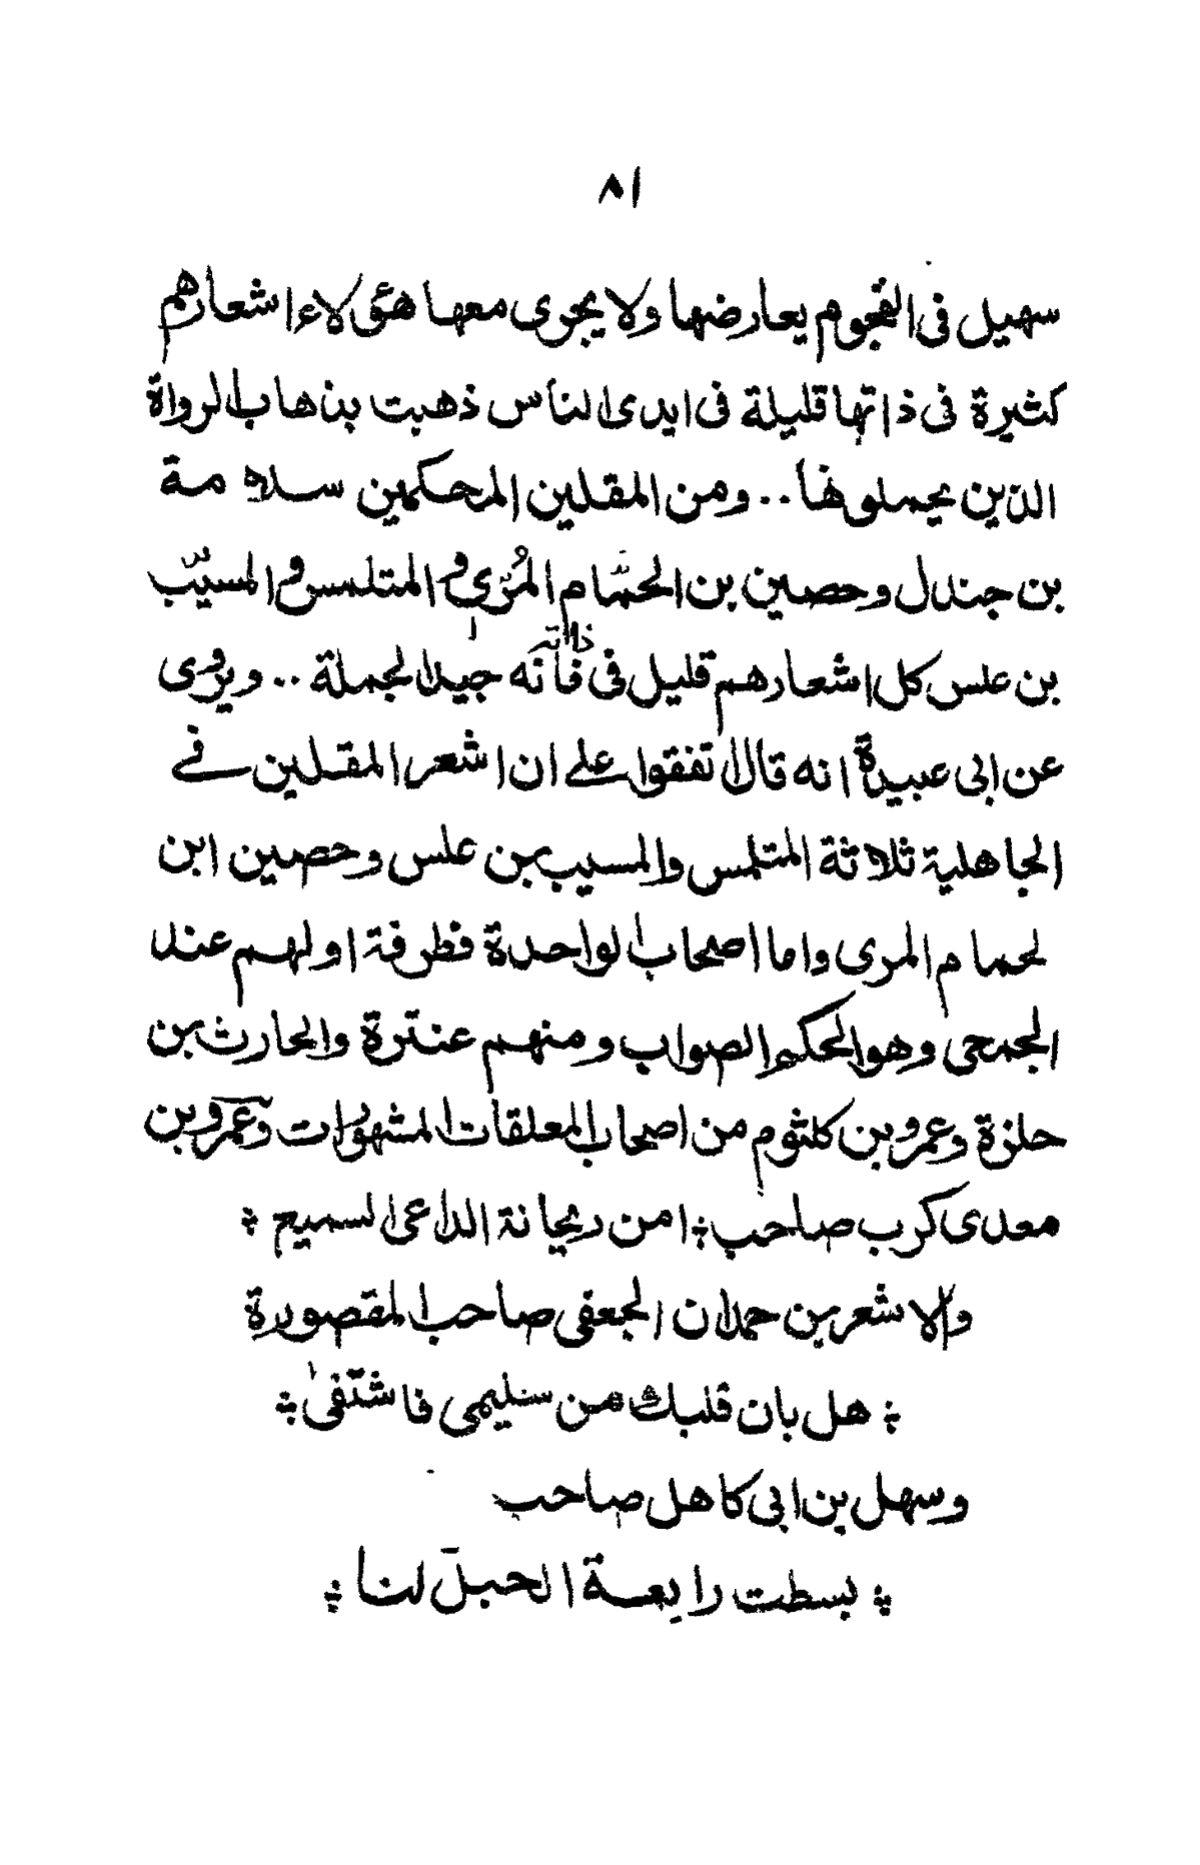 ٨١
سهيل فى النجوم يعارضها ولا يجرى معها هؤلاء اشعارهم
كثيرة فى ذاتها قليلة فى ايدى الناس ذهبت بذهاب الرواة
الذين يحملونها .. ومن المقلين المحكمين سلامة
بن جندل وحصين بن الحمّام المُرّى والمتلمس والمسيّب
بن علس كل اشعارهم قليل فى ذاته فأنه جيد الجملة .. ويروى
عن ابى عبيدة انه قال اتفقوا على ان اشعر المقلين فى
الجاهلية ثلاثة المتلمس والمسيب بن علس وحصين ابن
لحمام المرى واما اصحاب الواحدة فطرفة اولهم عند
الجمحى وهو المحكم الصواب ومنهم عنترة والحارث بن
حلزة وعمرو بن كلثوم من اصحاب المعلقات المشهورات وعمرو بن
معدى كرب صاحب ؛ امن ريحانة الداعى السميع ؛
والاشعر بن حمدان الجعفى صاحب المقصورة
؛ هل بان قلبك من سليمى فاشتفىٰ ؛
وسهل بن ابى كاهل صاحب
؛ بسطت رابعة الحبل لنا ؛